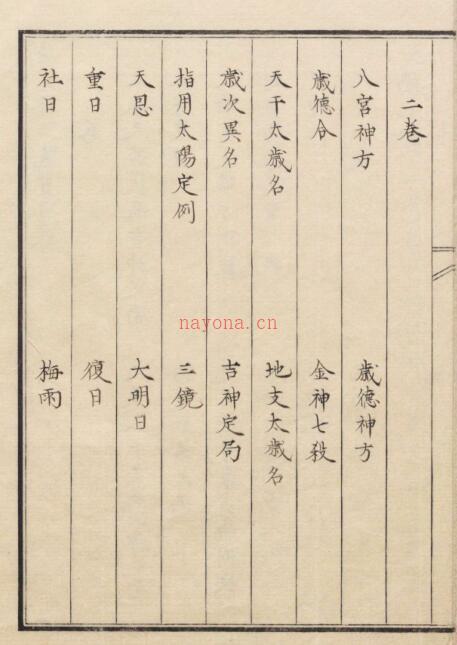 二卷
八宮神方 歲德神方
歲德合 金神七殺
天干太歲名 地支太歲名
歲次異名 吉神定局
指用太陽定例 三鏡
天恩 大明日
重日 復日
社日 梅雨
nayona.cn